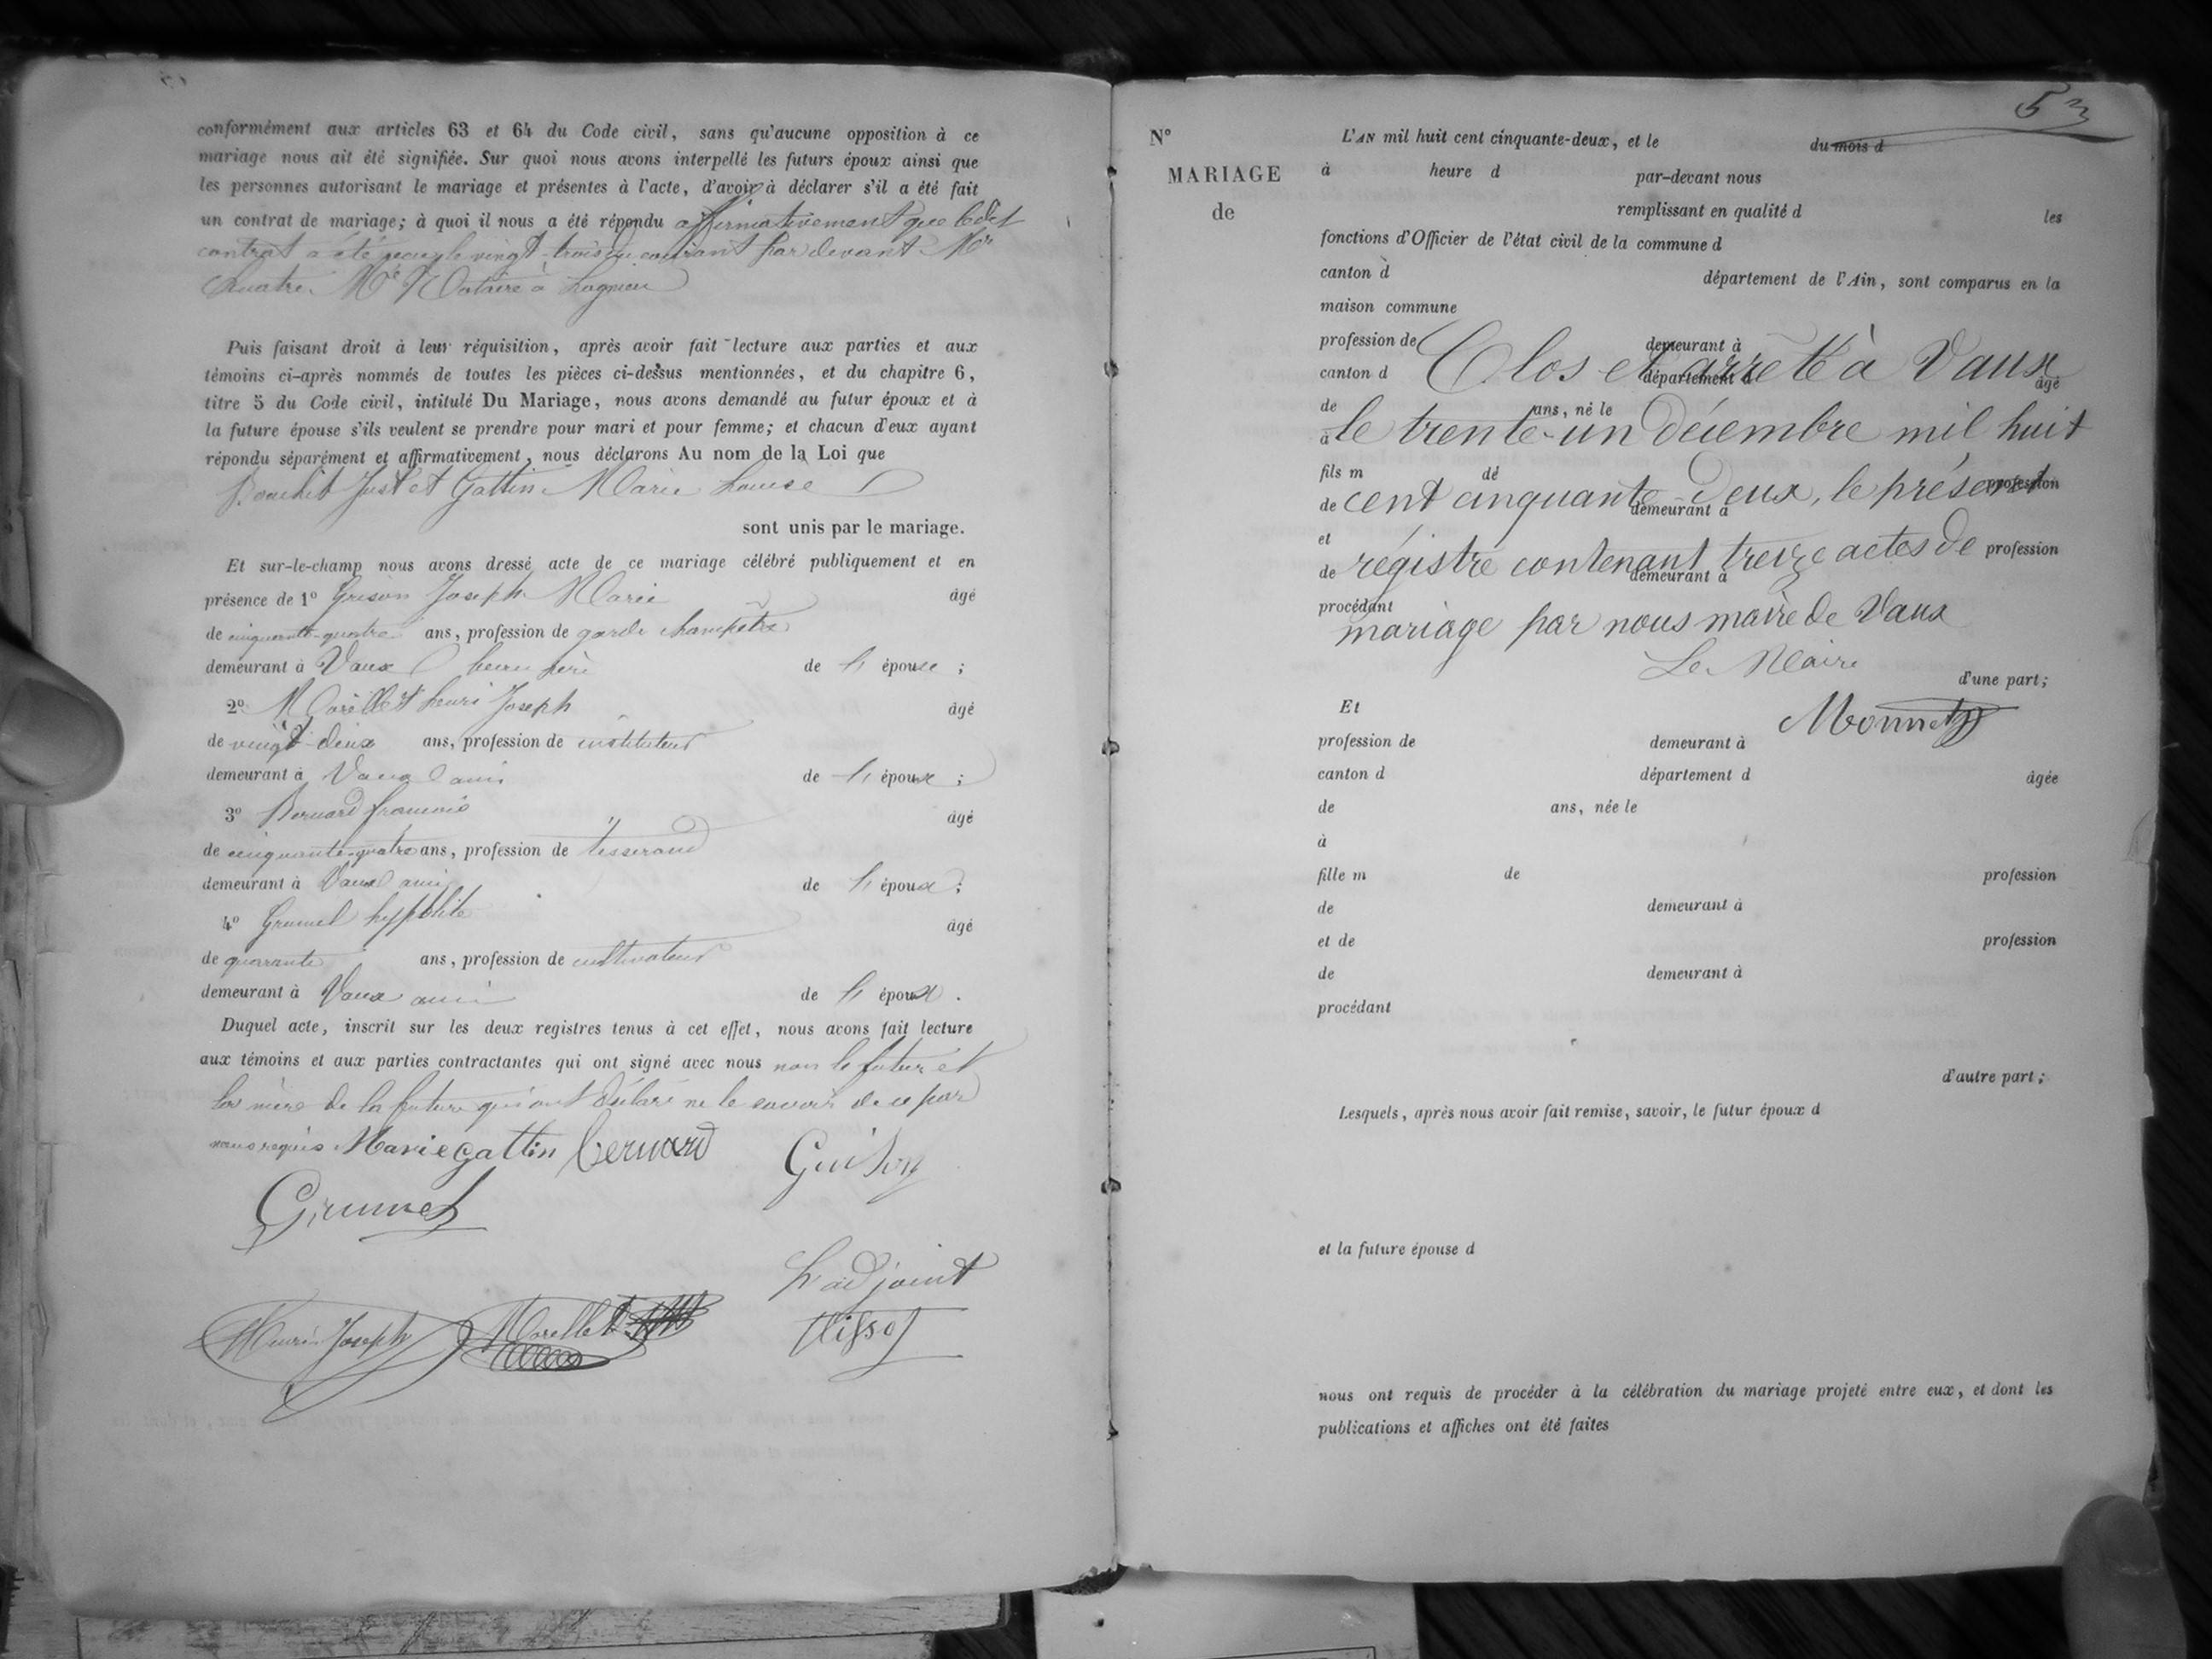 conformément aux articles 63 et 64 du Code civil, sans qu'aucune opposition à ce
mariage nous ait été signifiée. Sur quoi nous avons interpellé les futurs époux ainsi que
les personnes autorisant le mariage et présentes à l'acte, d'avoir à déclarer s'il a été fait
un contrat de mariage; à quoi il nous a été répondu affirmativement que ledit
contrat a été reçu le vingt-trois du courant par devant Me
Me Notaire à Lagnieu
Puis faisant droit à leur réquisition, après avoir fait lecture aux parties et aux
témoins ci-après nommés de toutes les pièces ci-dessus mentionnées, et du chapitre 6,
titre 5 du Code civil, intitulé Du Mariage, nous avons demandé au futur époux et à
la future épouse s'ils veulent se prendre pour mari et pour femme; et chacun d'eux ayant
répondu séparément et affirmativement, nous déclarons Au nom de la Loi que
Just et Gattin Marie Louise
sont unis par le mariage.
Et sur-le-champ nous avons dressé acte de ce mariage célébré publiquement et en
présence de 1º Joseph Marie âgé
de cinquante-quatre ans, profession de garde champêtre
demeurant à Vaux beau père de l'épouse ;
2º Morellet henri Joseph âgé
de vingt-deux ans, profession de instituteur
demeurant à Vaux ami de l'époux ;
3º Bernard françois âgé
de cinquante-quatre ans, profession de tisserand
demeurant à Vaux ami de l'époux ;
4º Grumel hyppolite âgé
de quarante ans, profession de cultivateur
demeurant à Vaux ami de l'époux .
Duquel acte, inscrit sur les deux registres tenus à cet effet, nous avons fait lecture
aux témoins et aux parties contractantes qui ont signé avec nous non le futur et
la mère de la future qui ont déclaré ne le savoir de ce par
nous requis Marie gattin bernard
Grumel
L'adjoint
Henri Joseph Morellet
Tissot
53
Nº
MARIAGE
de
L'AN mil huit cent cinquante-deux, et le du mois d
à heure d par-devant nous
remplissant en qualité d les
fonctions d'Officier de l'état civil de la commune d
canton d département de l'Ain, sont comparus en la
maison commune
profession de demeurant à
Clos et arrêté à Vaux
canton d département d âgé
de ans, né le
à le trente-un décembre mil huit
fils m de profession
de cent cinquante-deux, le présent
demeurant à
et profession
registre contenant treize actes de
de demeurant à
procédant
mariage par nous maire de Vaux
Le Maire
d'une part;
Et Monnet
profession de demeurant à
canton d département d âgée
de ans, née le
à
fille m de profession
de demeurant à
et de profession
de demeurant à
procédant
d'autre part;
Lesquels, après nous avoir fait remise, savoir, le futur époux d
et la future épouse d
nous ont requis de procéder à la célébration du mariage projeté entre eux, et dont les
publications et affiches ont été faites